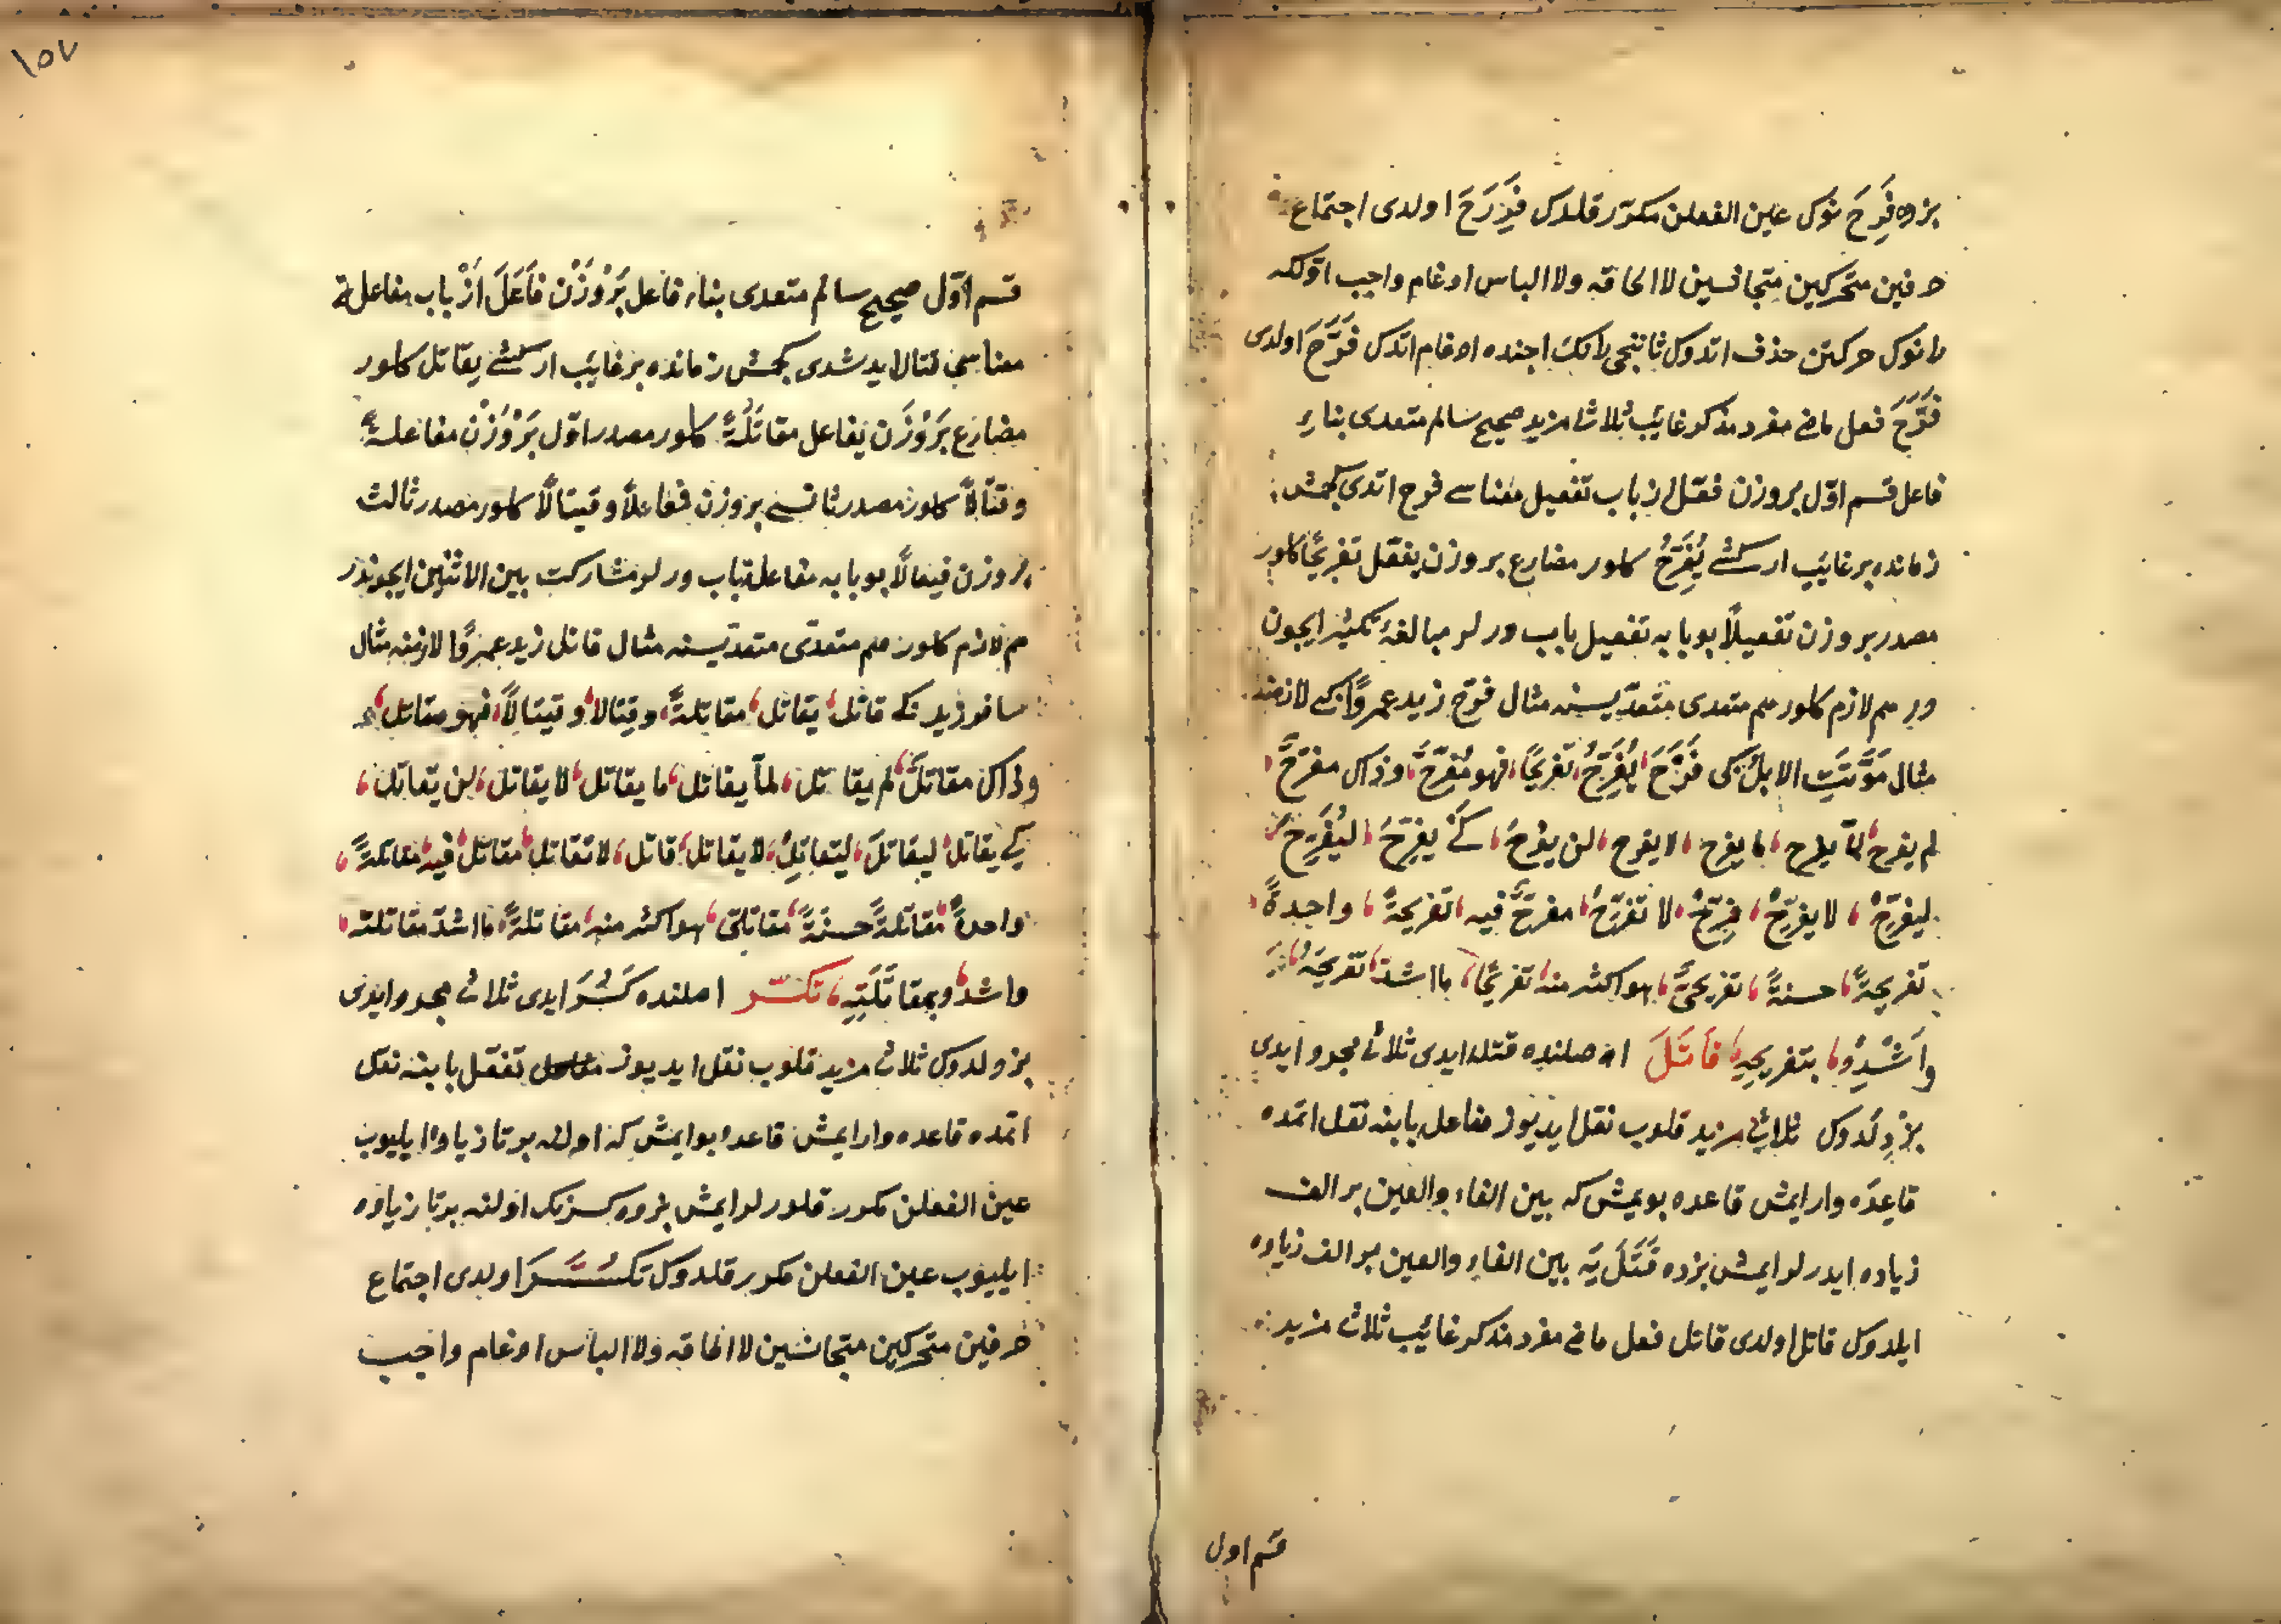 بزده فَرِحَ نوك عين الفعلن مكرّر قلدك فَرِرَحَ اولدى اجتماع
حرفين متحركين متجانسين لا الحاقه ولا الباس ادغام واجب اوّلكه
رانوك حركتن حذف اتدوك ثانيجى رانك اجنده ادغام اتدك فَرَّحَ اولدى
فَرَّحَ فعل ماضى مفرد مذكر غائب ثلاثى مزيد صحيح سالم متعدى بناء
فاعل قسم اوّل بروزن فعّل از باب تفعيل معناسى فرح اتدى كچمش
زمانده بر غايب ار كشى يُفَرِّحُ كلور مضارع بروزن يفعّل تفريحًا كلور
مصدر بروزن تفعيلًا بو بابه تفعيل باب ورلر مبالغۀ تكثير ايچون
ور هم لازم كلور هم متعدى متعدّيسنه مثال فرّح زيد عمروًا كى لازمنه
مثال مَوَّتَتِ الابلُ كى فَرَّحَ يُفَرِّحُ تفريحًا فهو مُفَرِّحٌ وذاك مفرَّحٌ
لم يفرح لمّا يفرح ما يفرح لا يفرح لن يفرحَ كَىْ يفرّحَ لِيُفَرِّحَ
ليفرِّحْ لا يفرِّحْ فرِّحْ لا تفرِّحْ مفرَّحٌ فيه تفريحةً واحدةً
تفريحةً حسنةً تفريحىٌّ هو اكثر منه تفريحًا ما اشدّ تفريحَهُ
وَاَشْدِدْ بتفريحِهِ قَاتَلَ اصلنده قتل ايدى ثلاثى مجرد ايدى
بزدِلَدوك ثلاثى مزيد قلوب نقل ايديوز مفاعل بابنه نقل اتمده
قاعده وارايمش قاعده بويمش كه بين الفاء والعين بر الف
زياده ايدرلر ايمش بزده قَتَلَ يَه بين الفاء والعين بر الف زياده
ايلدوك قاتل اولدى قاتل فعل ماضى مفرد مذكر غائب ثلاثى مزيد
قسم اول
١٥٧
قسم اوّل صحيح سالم متعدى بناء فاعل بَرْ وَزْن فَاعَلَ اَزْ باب مفاعلة
معناسى قتال ايدشدى كچمش زمانده بر غائب ار كشى يقاتل كلور
مضارع بَرْ وَزْن يفاعل مقاتلَةً كلور مصدر اوّل بَرْ وَزْن مفاعلةً
وقتالًا كلور مصدر ثانى بروزن فعالًا وقيتالًا كلور مصدر ثالث
بروزن فيعالًا بو بابه مفاعلة باب ورلر مشاركت بين الاثنين ايچوندر
هم لازم كلور هم متعدّى متعدّيسنه مثال قاتل زيد عمروًا لازمنه مثال
سافر زيد كى قاتل يقاتل مقاتلةً وقتالا وقيتالًا فهو مقاتل
وذاك مقاتلٌ لم يقاتل لمّا يقاتل ما يقاتل لا يقاتل لن يقاتل
كى يقاتل ليقاتلَ ليقاتلْ لا يقاتل قاتل لا تقاتل مقاتل فيه مقاتلةً
واحدةً مقاتلةً حسنةً مقاتلىٌّ هو اكثر منه مقاتلةً ما اشدّ مقاتلته
واشدد بمقاتَلَتِهِ تكسّر اصلنده كَسَرَ ايدى ثلاثى مجرد ايدى
بزولدوك ثلاثى مزيد قلوب نقل ايديوز تفعّل بابنه نقل
اتمده قاعده وارايمش قاعده بوايمش كه اولنه بر تا زياده ايليوب
عين الفعلن مكرر قلورلر ايمش بزده كسرنك اولنه بر تا زياده
ايليوب عين الفعلن مكرر قلدوك تكسسر اولدى اجتماع
حرفين متحركين متجانسين لا الحاقه ولا الباس ادغام واجب